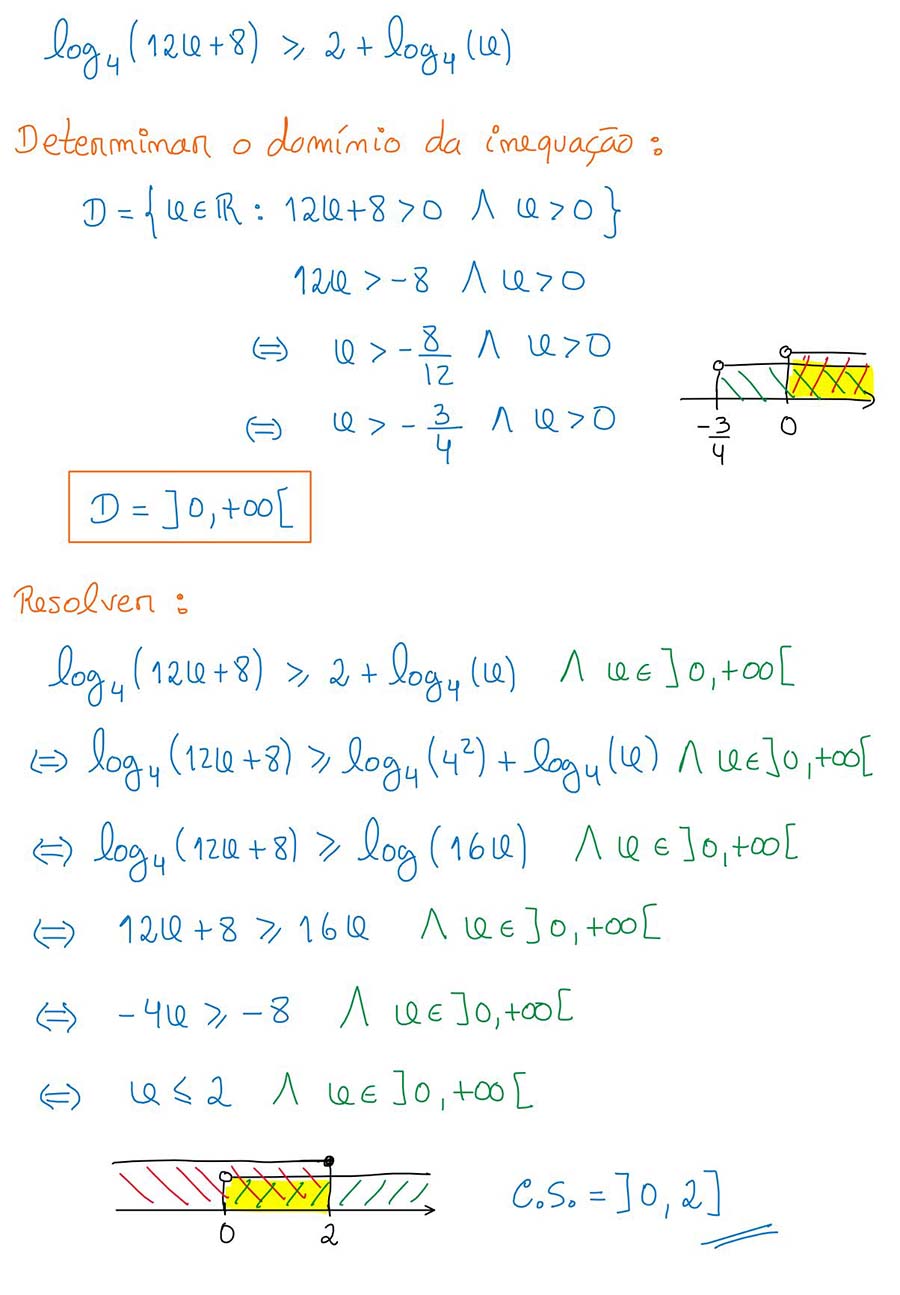 log₄(12x+8) ⩾ 2 + log₄(x)
Determinar o domínio da inequação:
D = {x∈ℝ: 12x+8>0 ∧ x>0}
12x > -8 ∧ x>0
⇔ x > -8/12 ∧ x>0
⇔ x > -3/4 ∧ x>0
-3/4 0
D = ]0,+∞[
Resolver:
log₄(12x+8) ⩾ 2 + log₄(x) ∧ x∈]0,+∞[
⇔ log₄(12x+8) ⩾ log₄(4²) + log₄(x) ∧ x∈]0,+∞[
⇔ log₄(12x+8) ⩾ log(16x) ∧ x∈]0,+∞[
⇔ 12x+8 ⩾ 16x ∧ x∈]0,+∞[
⇔ -4x ⩾ -8 ∧ x∈]0,+∞[
⇔ x ⩽ 2 ∧ x∈]0,+∞[
0 2
C.S. = ]0,2]